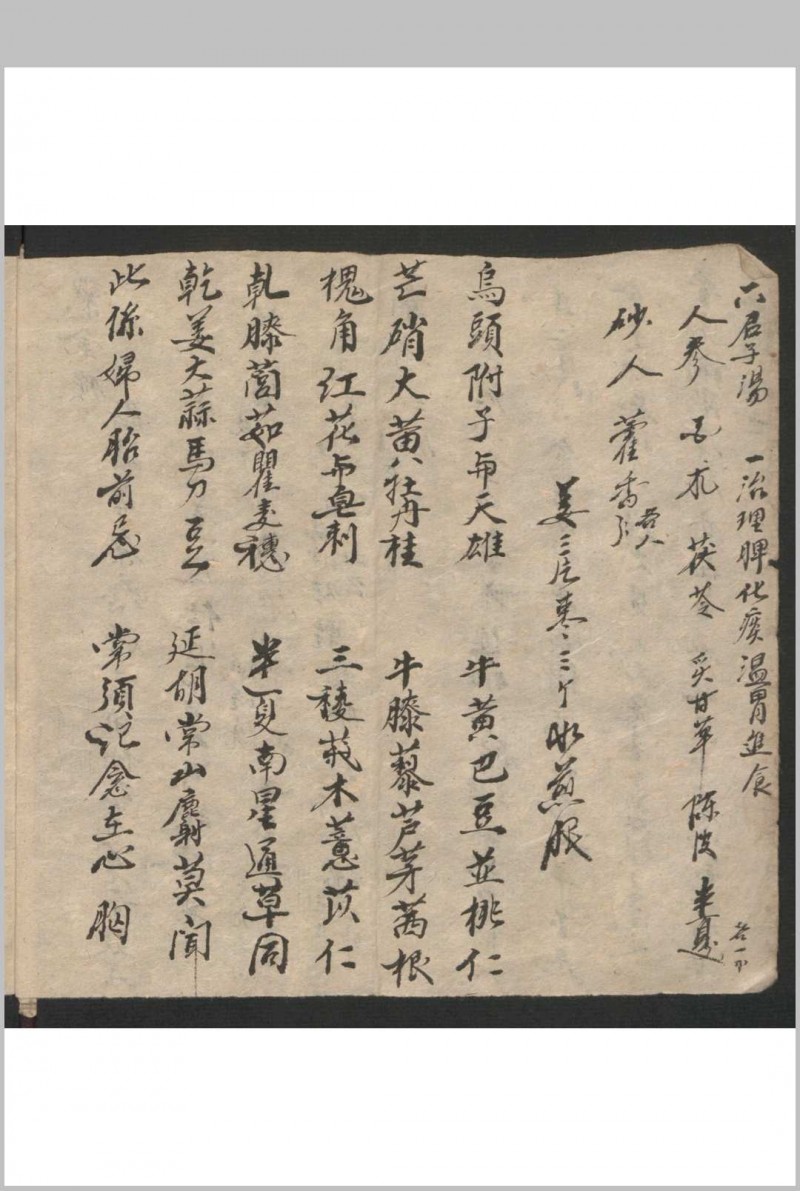 六君子湯 一治理脾化痰溫胃進食
人參 白朮 茯苓 炙甘草 陳皮 半夏 各一
砂人 藿香
姜三片枣三个水煎服
烏頭附子与天雄 牛黄巴豆並桃仁
芒硝大黄牡丹桂 牛膝藜芦茅茜根
槐角红花与皂刺 三稜莪木薏苡仁
乾膝茴茹瞿麦穗 半夏南星通草同
乾姜大蒜馬刀豆 延胡常山麝莫聞
此係婦人胎前忌 常須记念在心胸